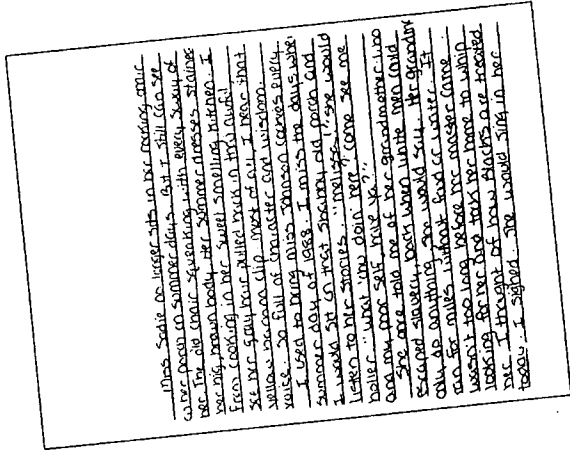 Miss Sadie no longer sits in her rocking chair
on her porch on summer days. But I still can see
her. The old chair squeaking with every sway of
her big, brown body. Her summer dresses stained
from cooking in her sweet smelling kitchen. I
see her gray hair pulled back in that awful
yellow banana clip. Most of all, I hear that
voice. So full of character and wisdom.
I used to bring Miss Johnson cookies every
summer day of 1988. I miss the days where
I would sit on that shabby old porch and
listen to her stories. "Melissa!", she would
holler. "What you doin' here? Come see me
and my poor self, have ya?"
She once told me of her grandmother who
escaped slavery, back when white men could
only do anything, she would say. Her grandma
ran for miles without food or water. It
wasn't too long before her master came
looking for her and took her home to whip
her. I thought of how blacks are treated
today. I sighed. She would sing in her